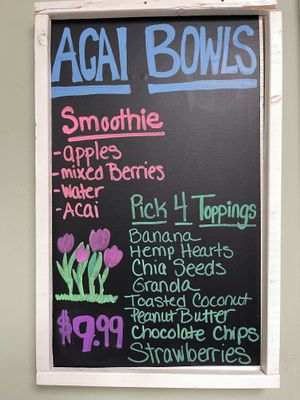 ACAI BOWLS
Smoothie
- apples
- mixed Berries
- Water
- Acai
Pick 4 Toppings
Banana
Hemp Hearts
Chia Seeds
Granola
Toasted Coconut
Peanut Butter
Chocolate Chips
Strawberries
$9.99